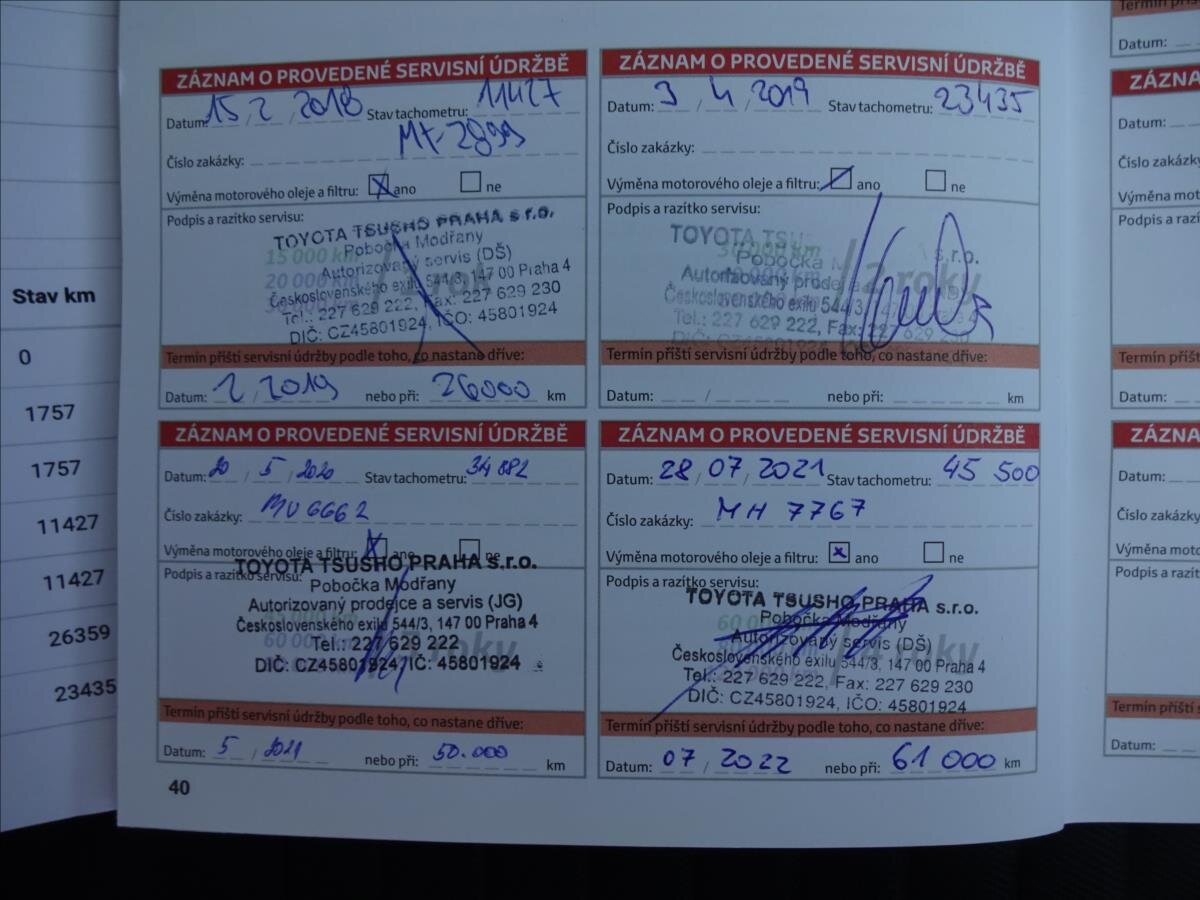 Stav km
0
1757
1757
11427
11427
26359
23435
ZÁZNAM O PROVEDENÉ SERVISNÍ ÚDRŽBĚ
Datum: 15 / 2 / 2018 Stav tachometru: 11427
Číslo zakázky: MX-2899
Výměna motorového oleje a filtru: ano ne
Podpis a razítko servisu:
TOYOTA TSUSHO PRAHA s r.o.
Pobočka Modřany
15 000 km
Autorizovaný servis (DŠ)
20 000 km
Československého exilu 544/3, 147 00 Praha 4
Tel.: 227 629 222, Fax: 227 629 230
DIČ: CZ45801924, IČO: 45801924
Termín příští servisní údržby podle toho, co nastane dříve:
Datum: 2 / 2019 nebo při: 26000 km
ZÁZNAM O PROVEDENÉ SERVISNÍ ÚDRŽBĚ
Datum: 3 / 4 / 2019 Stav tachometru: 23435
Číslo zakázky:
Výměna motorového oleje a filtru: ano ne
Podpis a razítko servisu:
TOYOTA TSU s.r.o.
30 000 km
Pobočka M
/ 2 roky
Autorizovaný prodej
Československého exilu 544/3
Tel.: 227 629 222, Fax: 227 629 230
Termín příští servisní údržby podle toho, co nastane dříve:
Datum: / nebo při: km
ZÁZNAM O PROVEDENÉ SERVISNÍ ÚDRŽBĚ
Datum: 20 / 5 / 2020 Stav tachometru: 34 882
Číslo zakázky: MU 6662
Výměna motorového oleje a filtru: ano ne
Podpis a razítko servisu:
TOYOTA TSUSHO PRAHA s.r.o.
Pobočka Modřany
Autorizovaný prodejce a servis (JG)
Československého exilu 544/3, 147 00 Praha 4
Tel.: 227 629 222
60 000 roky
DIČ: CZ45801924, IČ: 45801924
Termín příští servisní údržby podle toho, co nastane dříve:
Datum: 5 / 2021 nebo při: 50.000 km
40
ZÁZNAM O PROVEDENÉ SERVISNÍ ÚDRŽBĚ
Datum: 28 / 07 / 2021 Stav tachometru: 45 500
Číslo zakázky: MH 7767
Výměna motorového oleje a filtru: ano ne
Podpis a razítko servisu:
TOYOTA TSUSHO PRAHA s.r.o.
Pobočka Modřany
Autorizovaný servis (DŠ)
4 roky
Československého exilu 544/3, 147 00 Praha 4
Tel.: 227 629 222, Fax: 227 629 230
DIČ: CZ45801924, IČO: 45801924
Termín příští servisní údržby podle toho, co nastane dříve:
Datum: 07 / 2022 nebo při: 61 000 km
Termín
Datum:
ZÁZNA
Datum:
Číslo zakázk
Výměna moto
Podpis a razí
Termín příšt
Datum:
ZÁZNA
Datum:
Číslo zakázk
Výměna moto
Podpis a razít
Termín příští
Datum: